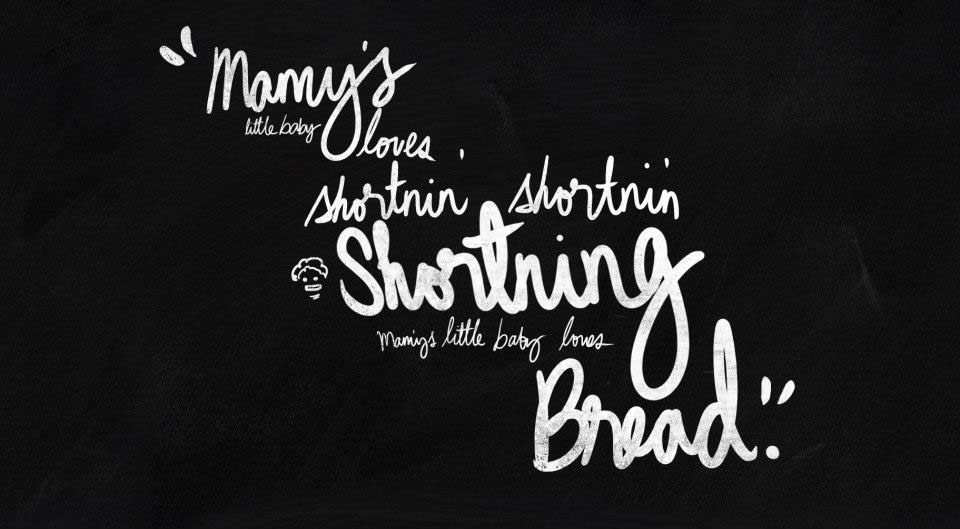 "Mamy's
little baby
loves
shortnin' shortnin'
Shortning
Mamys little baby loves
Bread."